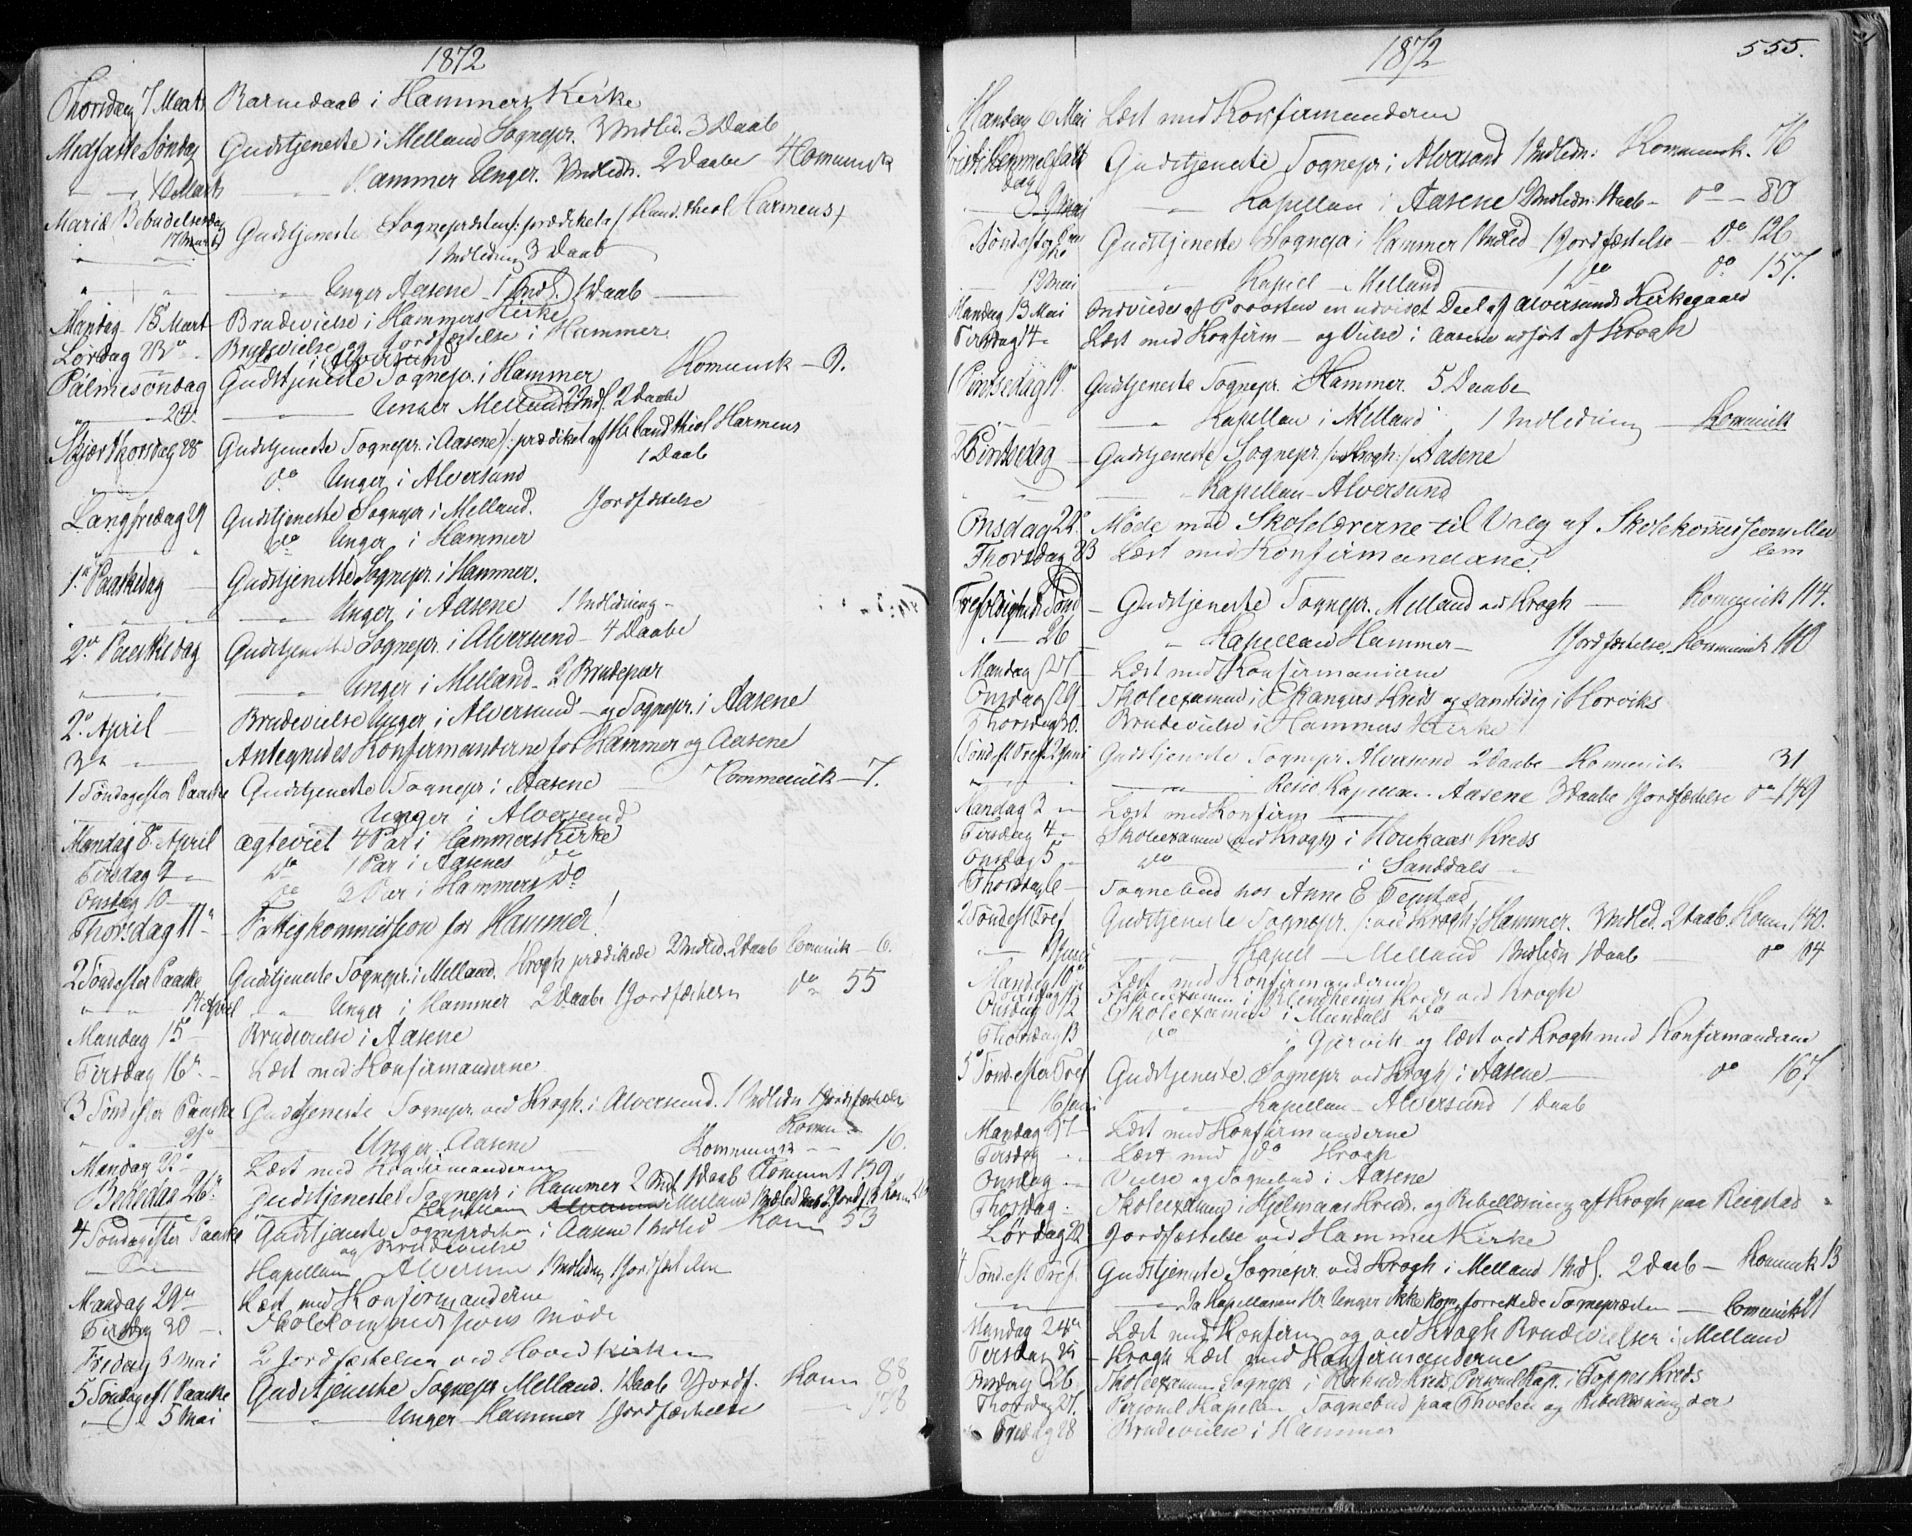 1872
Thorsdag 7 Marts Barnedaab i Hammers Kirke
Midfaste Søndag Gudstjeneste i Melland Sognepr. 3 Indled. 3 Daab
" " 10 Marts " Hammer Unger. 3 Indledn. 2 Daabe 4 Komunik
Mariæ Bebudelsesdag 17 Marts Gudstjeneste Sognepræsten /: prædikete /Kand. theol Harmens/
" 1 Indledning 3 Daab
" " " Unger Aasene 1 Indl. 1 Daab
Mandag 18 Mart Brudevielse i Hammers Kirke
Lørdag 23de Brudevielse og Jordfæstelse i Hammer
i Alversund
Palmesøndag Gudstjeneste Sognepr. i Hammer Komunik 9.
" 24. " Unger Melland 2 Indl. 2 Daabe
Skjærthorsdag 28 Gudstjeneste Sognepr. i Aasene /: prædiket af Hr Cand theol Harmens
" do Unger i Alversund 1 Daab
Langfredag 29 Gudstjeneste Sognepr i Melland. 1 Jordfæstelse
" do Unger i Hammer
1ste Paaskedag Gudstjeneste Sognepr. i Hammer.
" Unger i Aasene 1 Indledning
2den Paaskedag Gudstjeneste Sognepr. i Alversund 4 Daabe
" Unger i Melland 2 Brudepar
2de April Brudevielse Unger i Alversund og Sognepr. i Aasene
3de " Antegnedes Konfirmanderne for Hammer og Aasene
1 Søndag efter Paaske Gudstjeneste Sognepr i Aasene Kommunik 7.
Unger i Alversund
Mandag 8de April ægteviet 4 Par i Hammers Kirke
Tirsdag 9 do 1 Par i Aasenes do
Onsdag 10 do 3 Par i Hammers do
Thorsdag 11te Fattigkommission for Hammer!
2 Sønd efter Paaske Gudstjeneste Sognepr. i Melland. Krogh prædikede 2 Indled. 2 Daab Comunik 6.
" " 14 April " Unger i Hammer 2 Daabe 1 Jordfæstelse do 55
Mandag 15 Brudevielse i Aasene
Tirsdag 16de Læst med Konfirmanderne
3 Sønd efter Paaske Gudstjeneste Sognepr. ved Krogh i Alversund. 1 Indledn 1 Jordfæstelse
Komun
" " 21de Unger Aasene Kommunik 16.
Mandag 22de Læst med Konfirmanderne
Bededag 26de Gudstjeneste Sognepr i Hammer 2 Indl 1 Daab Comunik 139
Kapellan Melland
4 Søndag efter Paaske Gudstjeneste Sognepræsten i Aasene 1 Indled Kom 53
og Brudevielse
Kapellan Alversun 1 Indledn 1 Jordfæstelse
Mandag 29de Læst med Konfirmanderne
Tirsdag 30 Skolekommissions Møde
Fredag 3 Mai 2 Jordfæstelser ved Hovedkirken
5 Søndag eft Paaske Gudstjeneste Sognepr Melland. 1 Daab 2 Jordf. Kom 88
" 5 Mai " Unger Hammer 1 Jordfæstelse 178
1872 555.
Mandag 6 Mai Læst med Konfirmanderne
Kristi Himmelfarts dag Gudstjeneste Sognepr. i Alversund 1 Indledn: Komunik. 76
9 Mai " Kapellan i Aasene 1 Indledn: 1 Daab do 80
Gudstjeneste Sognepr i Hammer 1 Indled 1 Jordfæstelse do 126
12 Mai " Kapel Melland 1 do do 157.
Mandag 13 Mai Indviedes af Provsten en udvidet Deel af Alversunds Kirkegaard
Tirsdag 14 Læst med Konfirm og Vielse i Aasene udført af Krogh
1 Pintsedag 19de Gudstjeneste Sognepr. i Hammer. 5 Daabe
" Kapellan i Melland 1 Indledning Komunik
2 Pintsedag Gudstjeneste Sognepr. /: Krogh :/ Aasene
" Kapellan Alversund
Onsdag 22de Møde med Skolelærerne til Valg af Skolekommissions Medlem
Thorsdag 23 Læst med Konfirmandane
Trefoldigheds Sønd Gudstjeneste Sognepr. Melland ved Krogh Komunik 114.
" 26 " Kapellan Hammer 1 Jordfæstelse. Komunik 110
Mandag 27 Læst med Konfirmanderne
Onsdag 29 Skoleexamen i Skanges Kreds og samtidig i Horviks
Thorsdag 30. Brudevielse i Hammers Kirke
1 Sønd eft Tref. 2 Juni Gudstjeneste Sognepr Alversund 2 Daabe Komunik 31
" Kapellan Aasene 3 Daabe 1 Jordfæstelse do 149
Mandag 3 Læst med Konfirm
Tirsdag 4 Skoleexamen (ved Krogh) i Houkaas Kreds
Onsdag 5 do i Sanddals
Thorsdag 6 Sognebud hos Anne E Tepstad
2 Sønd eft Tref Gudstjeneste Sognepr. /: ved Krogh :/ Hammer. 3 Indled. 2 Daab. Komu 140.
" 9 Juni Kapell Melland 1 Indledn 1 Daab do 94
Mandag 10de Læst med Konfirmanderne
Skoleexamen i Blindheims Kreds ved Krogh
Onsdag 12 Skoleexamen i Mundals do
Thorsdag 13 do i Gjervik og læst ved Krogh med Konfirmandern
Sønd efter Tref Gudstjeneste Sognepr ved Krogh i Aasene do 167
16 Juni Kapellan Alversund 1 Daab
Mandag 17 Læst med Konfirmanderne
Tirsdag Læst med do Krogh
Onsdag Vielse og Sognebud i Aasene
Thorsdag Skoleexamen i Hjelmaas Kreds. og Bibellæsning af Krogh paa Reigstad
Lørdag 22 Jordfæstelse ved Hammer Kirke
4 Sønd eft Tref. Gudstjeneste Sognepr. ved Krogh i Melland 1 Indl. 2 Daab Komunik 13
" Da Kapellanen Hr Unger ikke kom, forrettede Sognepræsten Comunik 21
Mandag 24de Læst med Konfirm og ved Krogh Brudevielser i Melland
Tirsdag Krogh læst med Konfirmanderne
Onsdag 26 Skoleexamen Sognepr i Kreds, Personel Kap. i Toppes Kreds
Thorsdag 27. Personel Kapellan Sognebud paa Thveten og Bibellæsning der
Fredag 28 Brudevielse i Hammer